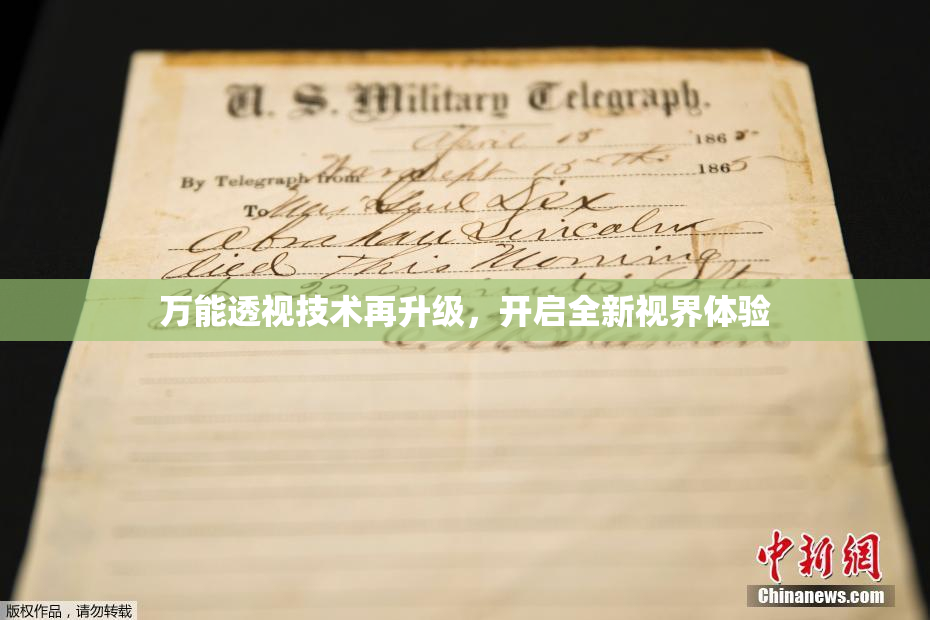 U. S. Military Telegraph.
April 15 1865
By Telegraph from War Dept 15th 1865
To Maj Genl Dix
Abraham Lincoln
died this morning
22 minutes after
万能透视技术再升级，开启全新视界体验
中新网
Chinanews.com
版权作品，请勿转载